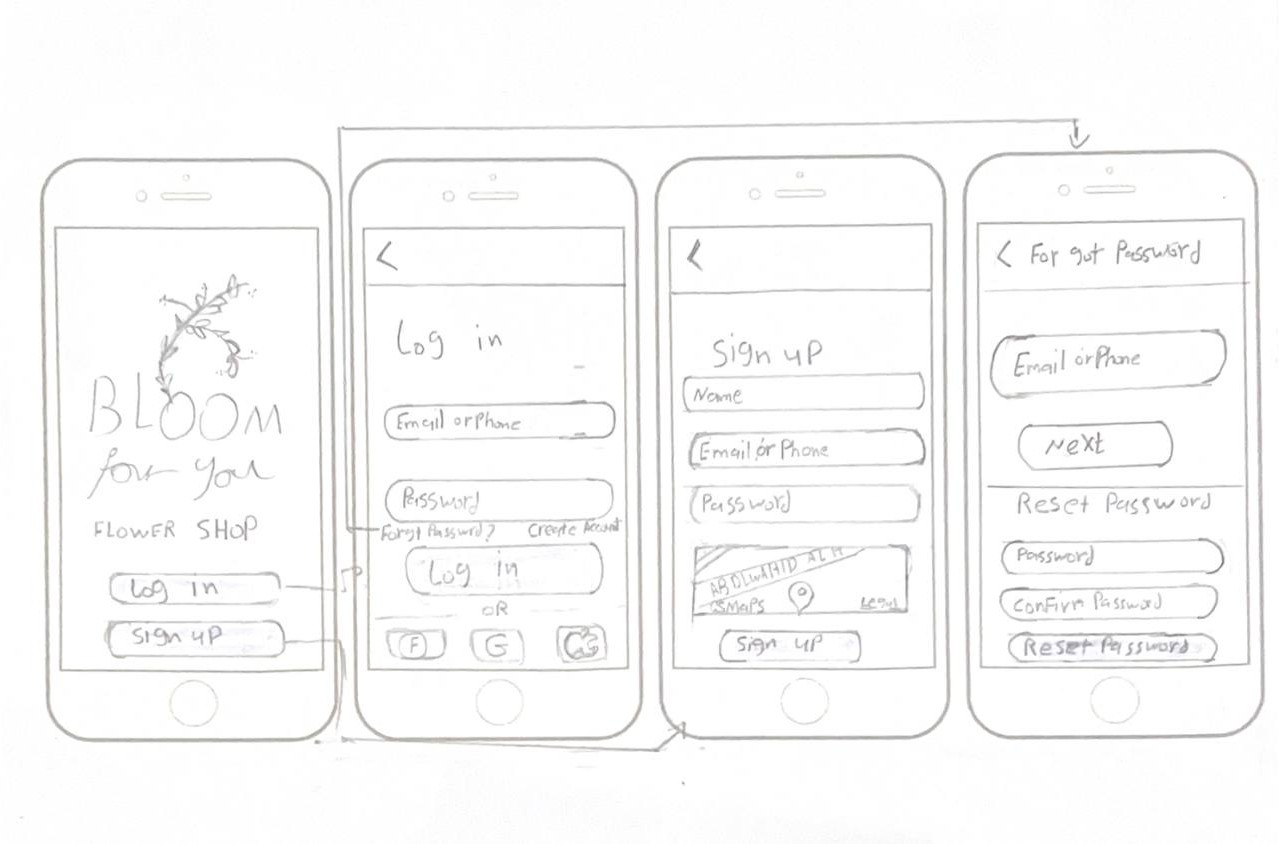 BLOOM
for you
FLOWER SHOP
Log in
Sign up
<
Log in
Email or Phone
Password
Forgt Passwrd? Create Account
Log in
OR
F G
<
Sign up
Name
Email or Phone
Password
ABDLWAHID AL
MAPS Legal
Sign up
< For got Password
Email or Phone
Next
Reset Password
Password
Confirm Password
Reset Password